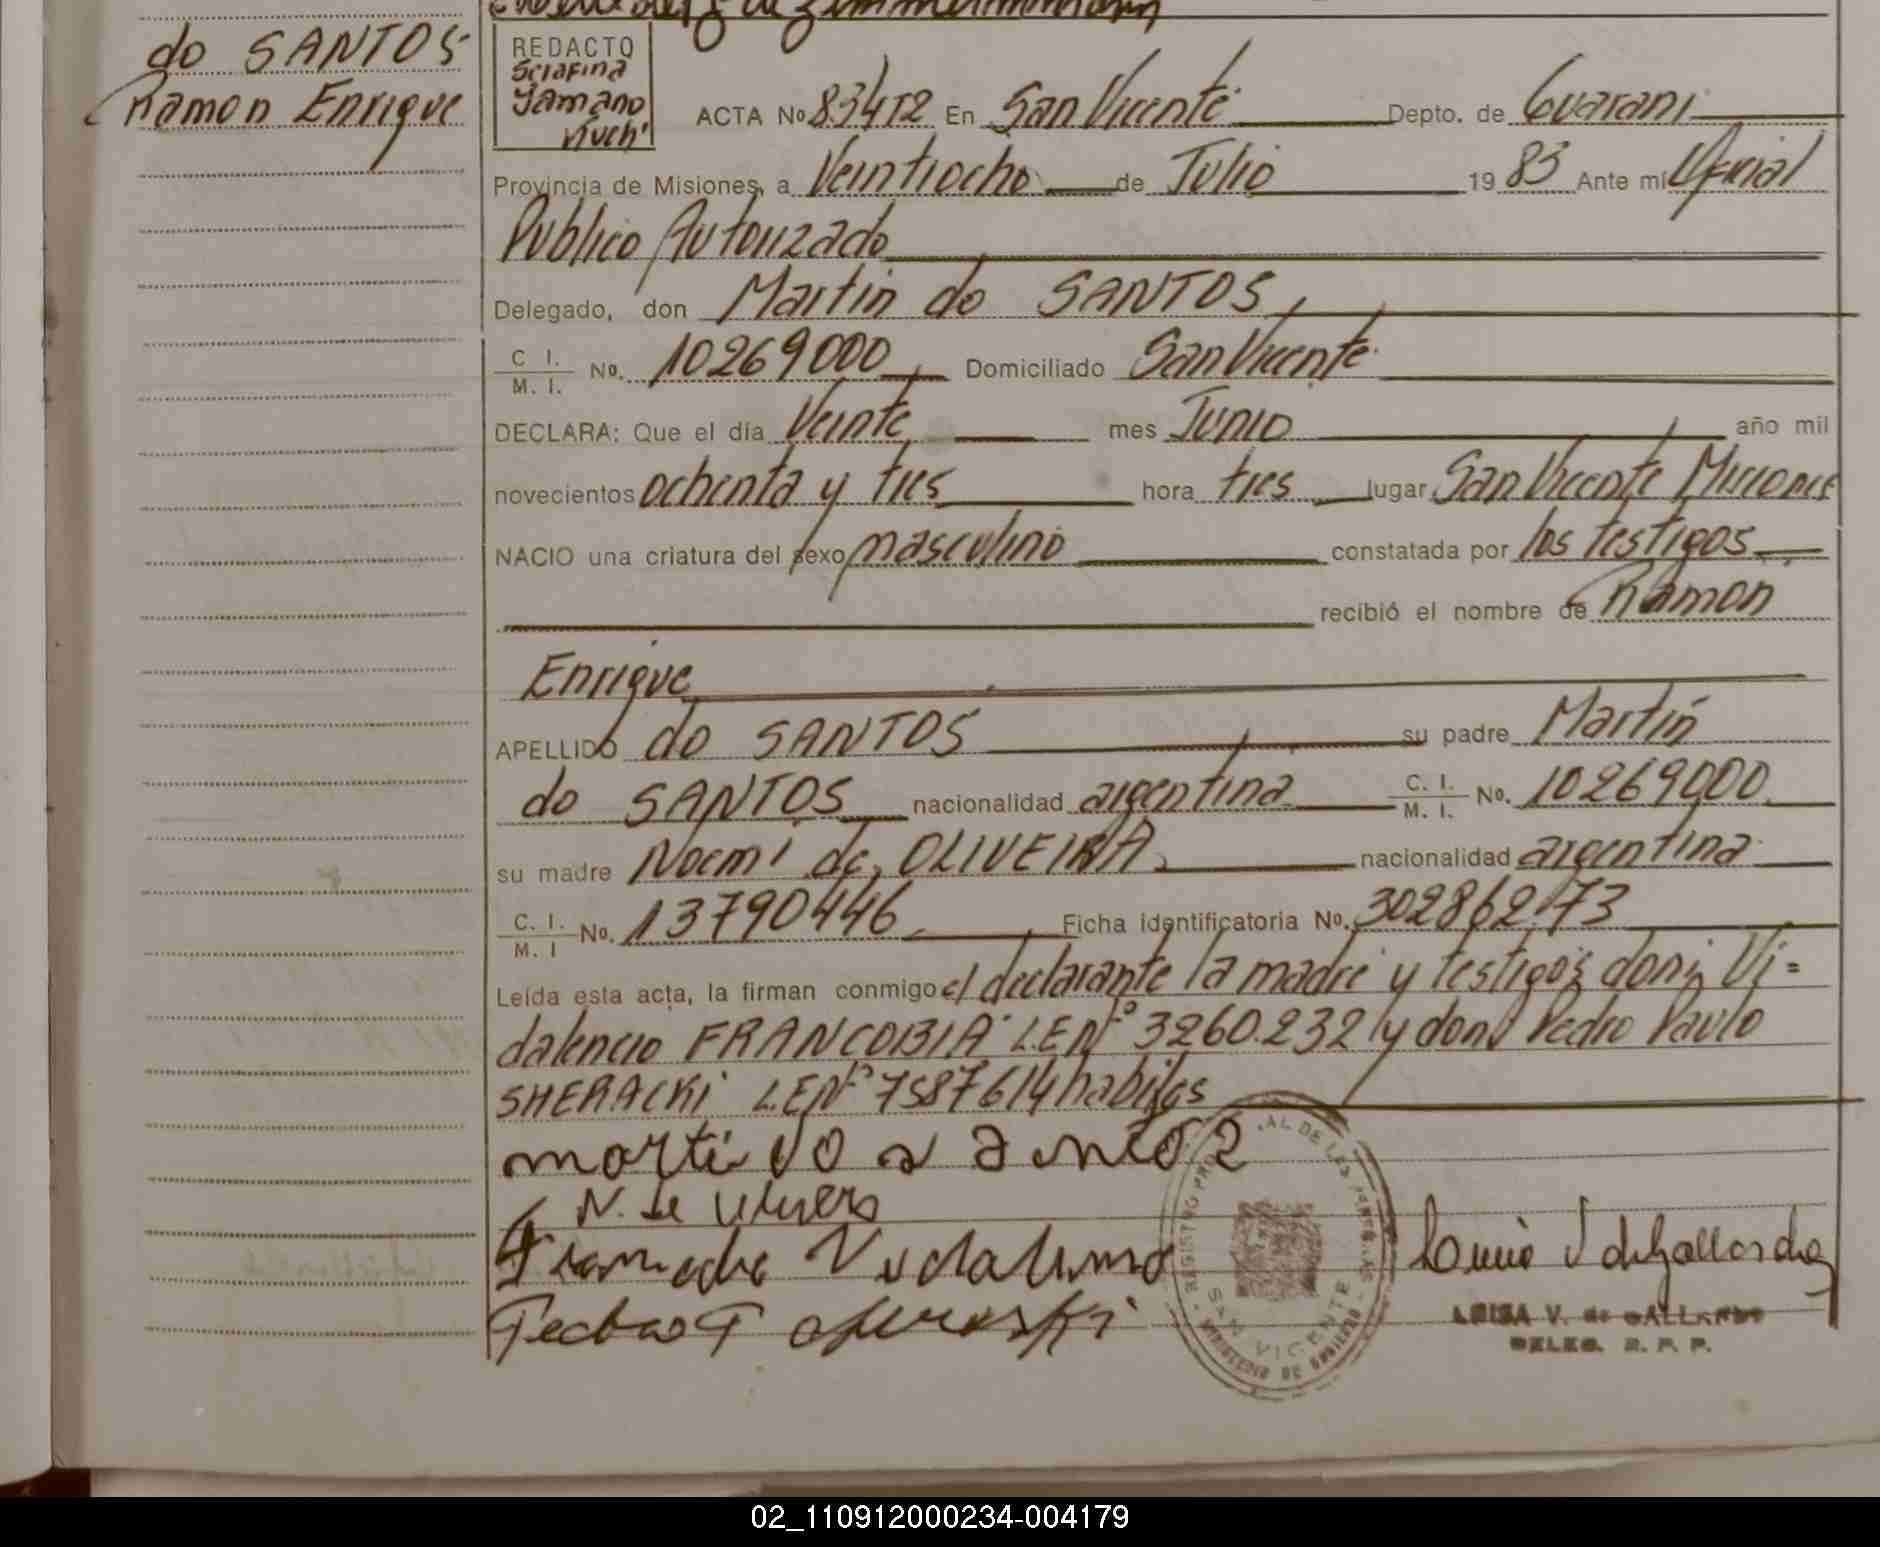 do SANTOS
Ramon Enrique
REDACTO
Serafina
Yamano
ACTA No 834T2 En San Vicente Depto. de Guarani
Provincia de Misiones, a Veintiocho de Julio 1983 Ante mi Oficial
Publico Autorizado
Delegado, don Martin do SANTOS,
C I. / M. I. No. 10269000, Domiciliado San Vicente
DECLARA: Que el día Veinte mes Junio año mil
novecientos ochenta y tres hora tres lugar San Vicente Misiones
NACIO una criatura del sexo masculino constatada por los testigos
recibió el nombre de Ramon
Enrique
APELLIDO do SANTOS su padre Martin
do SANTOS nacionalidad argentina C. I. / M. I. No. 10269000
su madre Noemi de OLIVEIRA nacionalidad argentina
C. I. / M. I No. 13790446 Ficha identificatoria No. 30286273
Leída esta acta, la firman conmigo el declarante la madre y testigos don Vi=
dalencio FRANCOBIA L.E Nº 3260.232 y don Pedro Paulo
SHERACKI L.E Nº 7587614 habiles
AL DE LAS PERSONAS
REGISTRO PRO
SAN VICENTE
LUISA V. de GALLARDO
DELEG. R. P. P.
02_110912000234-004179